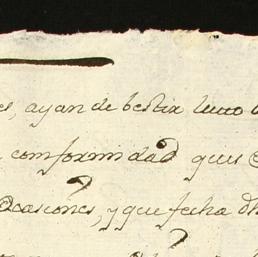 es, ayan de bestir luto
comformidad que
Ocasiones, y que fecha dh